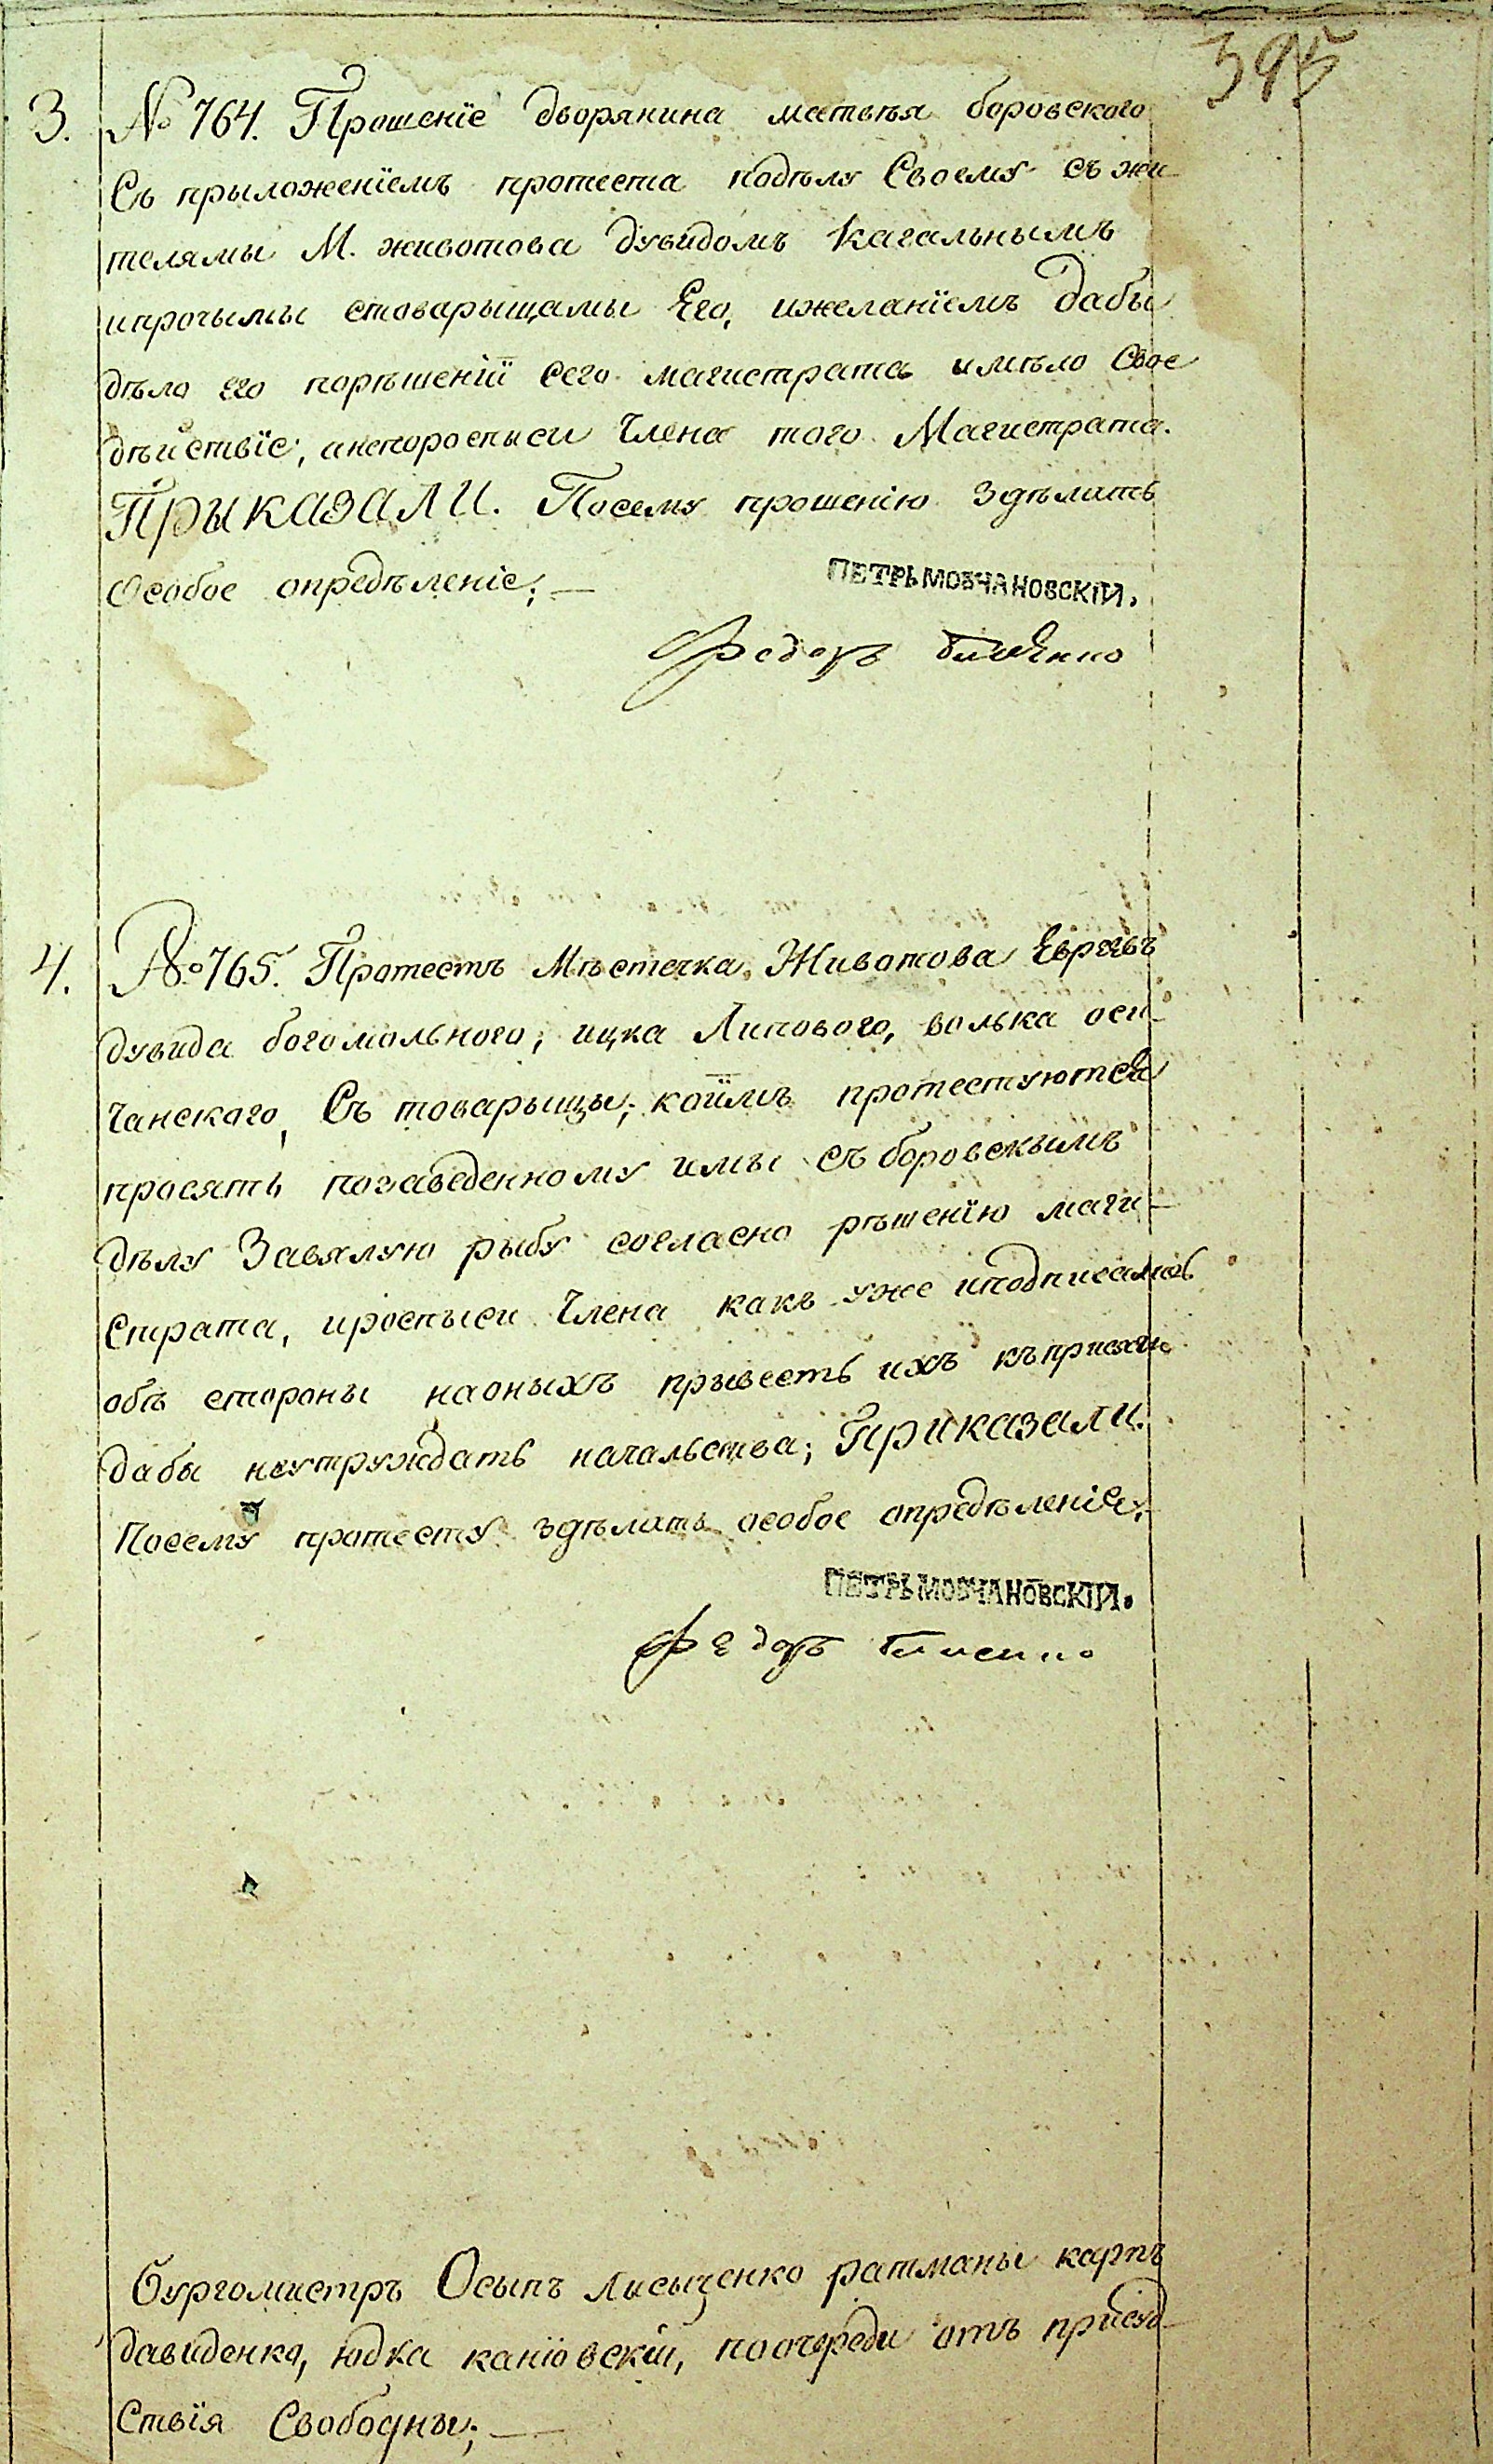 395
3. № 764. Прошеніе дворянина матвѣя боровского
Съ прыложеніемъ протеста подѣлу Своему съ жи-
телямы М. животова дувидомъ Кагальнымъ
ипрочымы стоварыщамы Его, ижеланіемъ дабы
дѣло его порѣшеніи сего магистрата имѣло Свое
дѣйствіе, анепоросписи Члена того Магистрата.
ПРЫКАЗАЛИ. Посему прошенію здѣлать
Особое опредѣленіе; —
ПЕТРЬ МОВЧАНОВСКІЙ.
Федоръ
4. № 765. Протестъ Мѣстечка Животова Евреевъ
дувида богомольного, ицка Липового, волька оси-
чанского, Съ товарыщы, коимъ протестуются
просять позаведенному имы съ боровскымъ
дѣлу Завялую рыбу согласно рѣшенію маги-
Страта, ироспыси Члена какъ уже иподписались
обѣ стороны наоныхъ прывесть ихъ къприсяги
дабы неутруждать начальства; Приказали.
Посему протесту здѣлать особое опредѣленіе;
ПЕТРЬ МОВЧАНОВСКІЙ.
Федоръ
Бургомистръ Осыпъ Лисыченко ратманы карпъ
давиденко, юдка каніовскій, поочереди отъ присуд-
Ствія Свободны; —